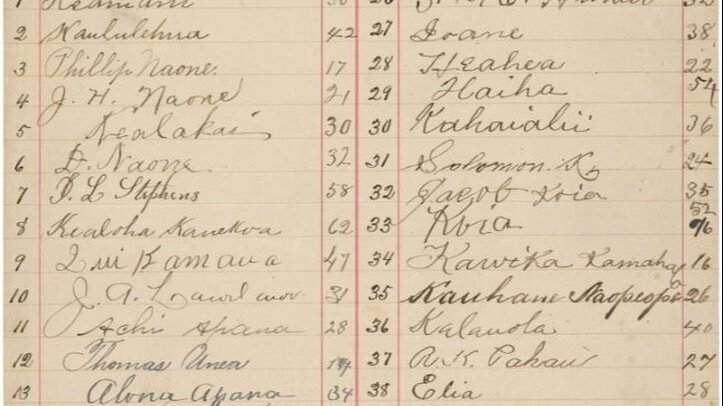 2 Kaululehua 42
3 Phillip Naone. 17
4 J. H. Naone 21
5 Nealakai 30
6 D. Naone 32
7 D L Stephens 58
8 Kealoha Kanekoa 62
9 Kamaua 47
10 J. A. 31
11 Achi Apana 28
12 Thomas Unea
13 Alona Apana 34
27 Ioane 38
28 Heahea 22
29 Haiha 54
30 Kahaialii 36
31 Solomon. K 24
32 Jacob Koia 35
33 Koia 52
34 Kawika Kamaha 16
35 Kauhane Naopeope 26
36 Kalauola 40
37 R. K. Pahau 27
38 Elia 28